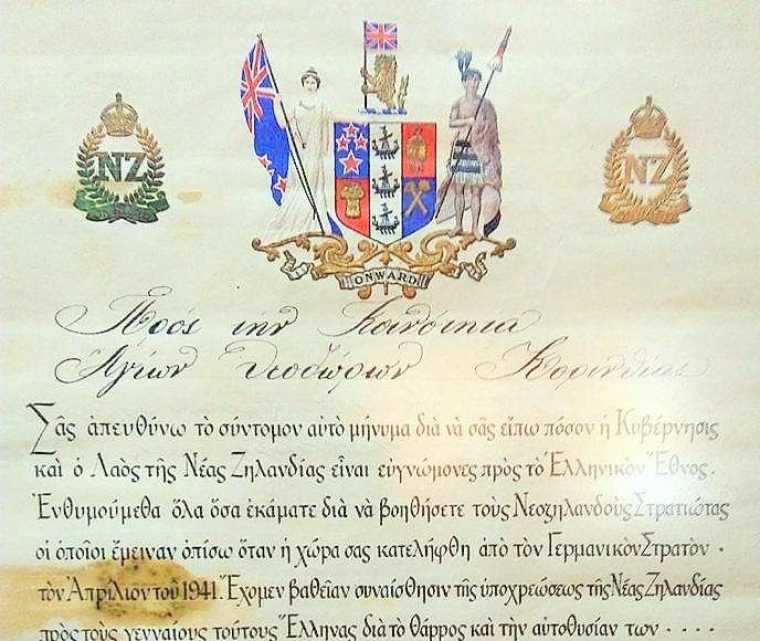 NZ
NZ
ONWARD
Πρός την Κοινότητα
Ἁγίων Θεοδώρων Κορινθίας
Σᾶς ἀπευθύνω τὸ σύντομον αὐτὸ μήνυμα διὰ νὰ σᾶς εἴπω πόσον ἡ Κυβέρνησις
καὶ ὁ Λαὸς τῆς Νέας Ζηλανδίας εἶναι εὐγνώμονες πρὸς τὸ Ἑλληνικὸν Ἔθνος.
Ἐνθυμούμεθα ὅλα ὅσα ἐκάματε διὰ νὰ βοηθήσετε τοὺς Νεοζηλανδοὺς Στρατιώτας
οἱ ὁποῖοι ἔμειναν ὀπίσω ὅταν ἡ χώρα σας κατελήφθη ἀπὸ τὸν Γερμανικὸν Στρατὸν ·
τὸν Ἀπρίλιον τοῦ 1941. Ἔχομεν βαθεῖαν συναίσθησιν τῆς ὑποχρεώσεως τῆς Νέας Ζηλανδίας
πρὸς τοὺς γενναίους τούτους Ἕλληνας διὰ τὸ θάρρος καὶ τὴν αὐτοθυσίαν των · · · ·